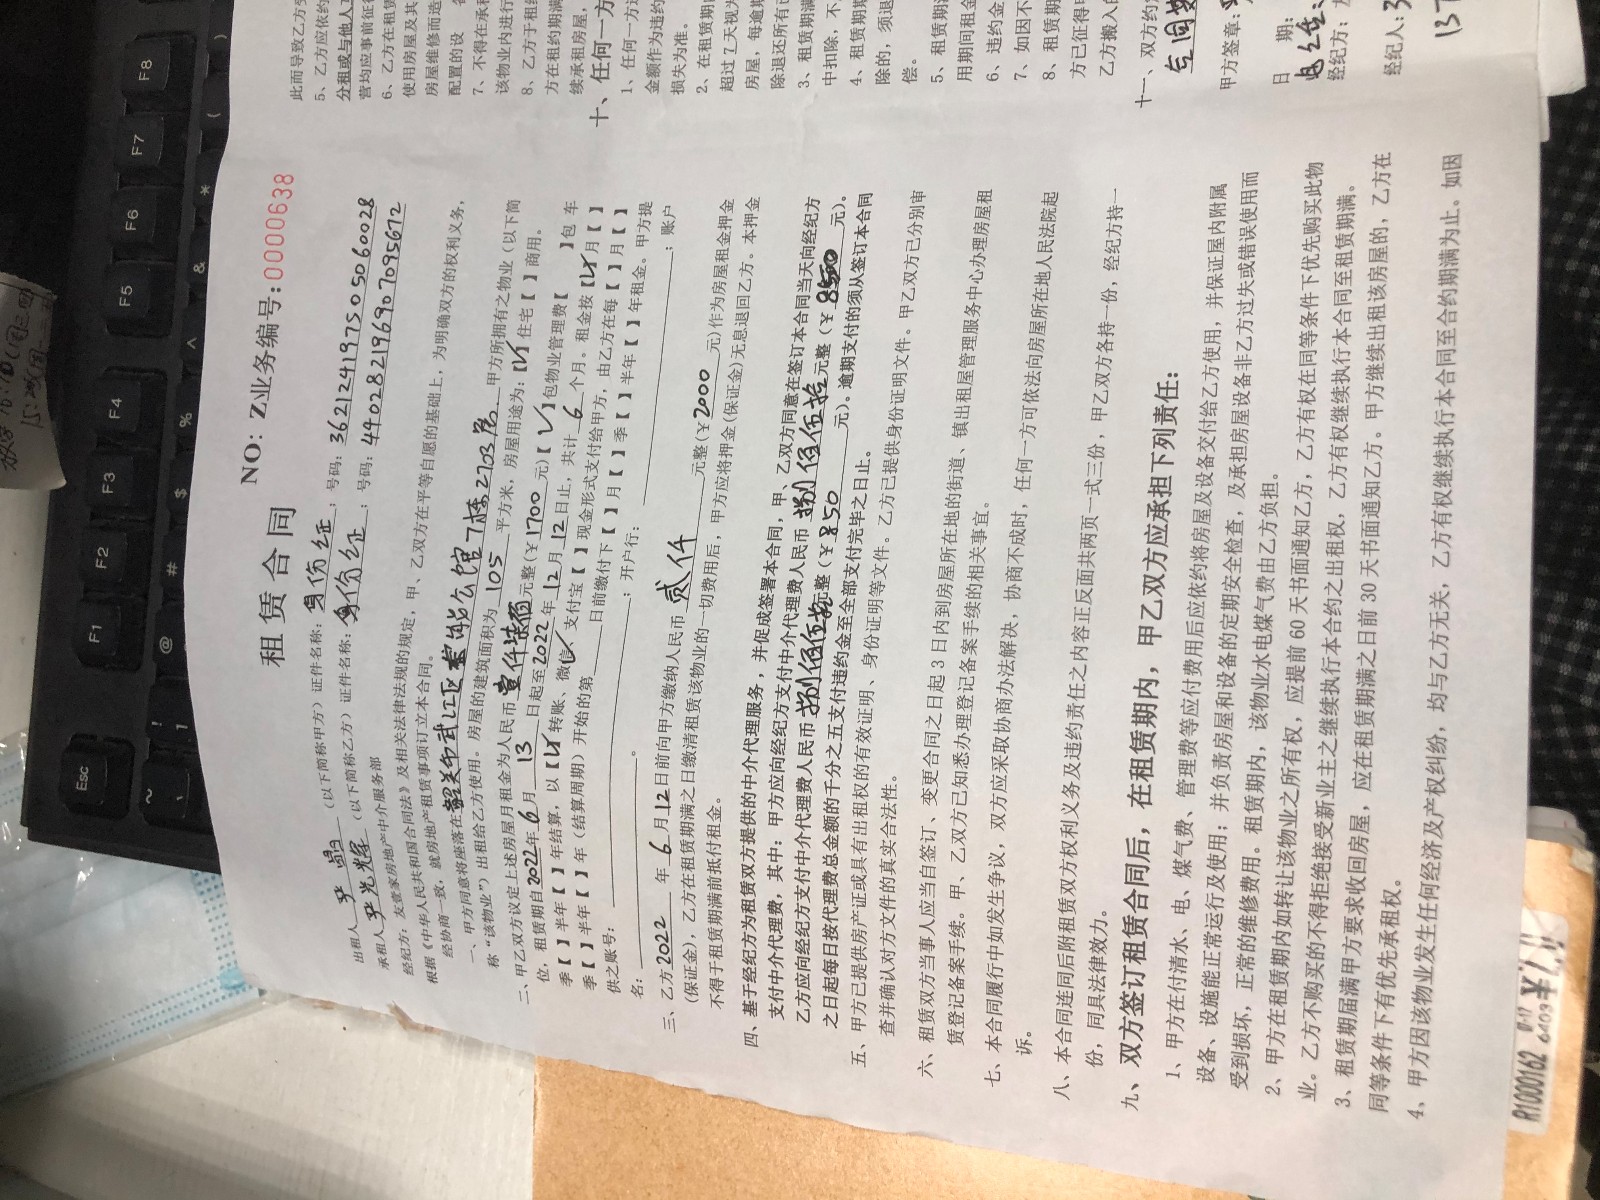 租赁合同
NO: Z业务编号:0000638
出租人 (以下简称甲方)证件名称:身份证;号码:362124197505060028
承租人尹光辉(以下简称乙方)证件名称:身份证;号码:440282196907095672
经纪方:友壹家房地产中介服务部
根据《中华人民共和国合同法》及相关法律法规的规定,甲、乙双方在平等自愿的基础上,为明确双方的权利义务,
经协商一致,就房地产租赁事项订立本合同。
一、甲方同意将座落在韶关市武江区 公馆7栋2703房 甲方所拥有之物业(以下简
称“该物业”)出租给乙方使用。房屋的建筑面积为105平方米,房屋用途为:【√】住宅【 】商用。
二、甲乙双方议定上述房屋月租金为人民币壹仟柒佰元整(¥1700元)【√】包物业管理费【 】包 车
位,租赁期自2022年6月13日起至2022年12月12日止,共计6个月。租金按【√】月【 】
季【 】半年【 】年结算,以【√】转账、微信√支付宝【 】现金形式支付给甲方,由乙方在每【 】月【 】
季【 】半年【 】年(结算周期)开始的第 日前缴付下【 】月【 】季【 】半年【 】年租金。甲方提
供之账号: ;开户行: ;账户
名: 。
三、乙方2022年6月12日前向甲方缴纳人民币贰仟元整(¥2000元)作为房屋租金押金
(保证金),乙方在租赁期满之日缴清租赁该物业的一切费用后,甲方应将押金(保证金)无息退回乙方。本押金
不得于租赁期满前抵付租金。
四、基于经纪方为租赁双方提供的中介代理服务,并促成签署本合同,甲、乙双方同意在签订本合同当天向经纪方
支付中介代理费,其中:甲方应向经纪方支付中介代理费人民币捌佰伍拾元整(¥850元)。
乙方应向经纪方支付中介代理费人民币捌佰伍拾元整(¥850元)。逾期支付的须从签订本合同
之日起每日按代理费总金额的千分之五支付违约金至全部支付完毕之日止。
五、甲方已提供房产证或具有出租权的有效证明、身份证明等文件。乙方已提供身份证明文件。甲乙双方已分别审
查并确认对方文件的真实合法性。
六、租赁双方当事人应当自签订、变更合同之日起3日内到房屋所在地的街道、镇出租屋管理服务中心办理房屋租
赁登记备案手续。甲、乙双方已知悉办理登记备案手续的相关事宜。
七、本合同履行中如发生争议,双方应采取协商办法解决,协商不成时,任何一方可依法向房屋所在地人民法院起
诉。
八、本合同连同后附租赁双方权利义务及违约责任之内容正反面共两页一式三份,甲乙双方各持一份,经纪方持一
份,同具法律效力。
九、双方签订租赁合同后,在租赁期内,甲乙双方应承担下列责任:
1、甲方在付清水、电、煤气费、管理费等应付费用后应依约将房屋及设备交付给乙方使用,并保证屋内附属
设备、设施能正常运行及使用;并负责房屋和设备的定期安全检查,及承担房屋设备非乙方过失或错误使用而
受到损坏,正常的维修费用。租赁期内,该物业水电煤气费由乙方负担。
2、甲方在租赁期内如转让该物业之所有权,应提前60天书面通知乙方,乙方有权在同等条件下优先购买此物
业。乙方不购买的不得拒绝接受新业主之继续执行本合约之出租权,乙方有权继续执行本合同至租赁期满。
3、租赁期届满甲方要求收回房屋,应在租赁期满之日前30天书面通知乙方。甲方继续出租该房屋的,乙方在
同等条件下有优先承租权。
4、甲方因该物业发生任何经济及产权纠纷,均与乙方无关,乙方有权继续执行本合同至合约期满为止。如因
此而导致乙方
5、乙方应依约
分租或与他人
营均应事前征
6、乙方在租赁
使用房屋及其
房屋维修而造
配置的设
7、不得在承租
该物业内进行
8、乙方于租
方在租约期满
续承租房屋,
十、任何一方
1、任何一方
金额作为违约
损失为准。
2、在租赁期
超过7天视为
房屋,每逾期
除退还所有
3、租赁期满
中扣除,不
4、租赁期
除的,须退
偿。
5、租赁期
用期间租金
6、违约金
7、如因不
8、租赁期
方已征得
乙方搬入的
十一、双方约
甲方签章:
日 期:
经纪方:
经纪人:
Esc
F1
F2
F3
F4
F5
F6
F7
F8
R1000162